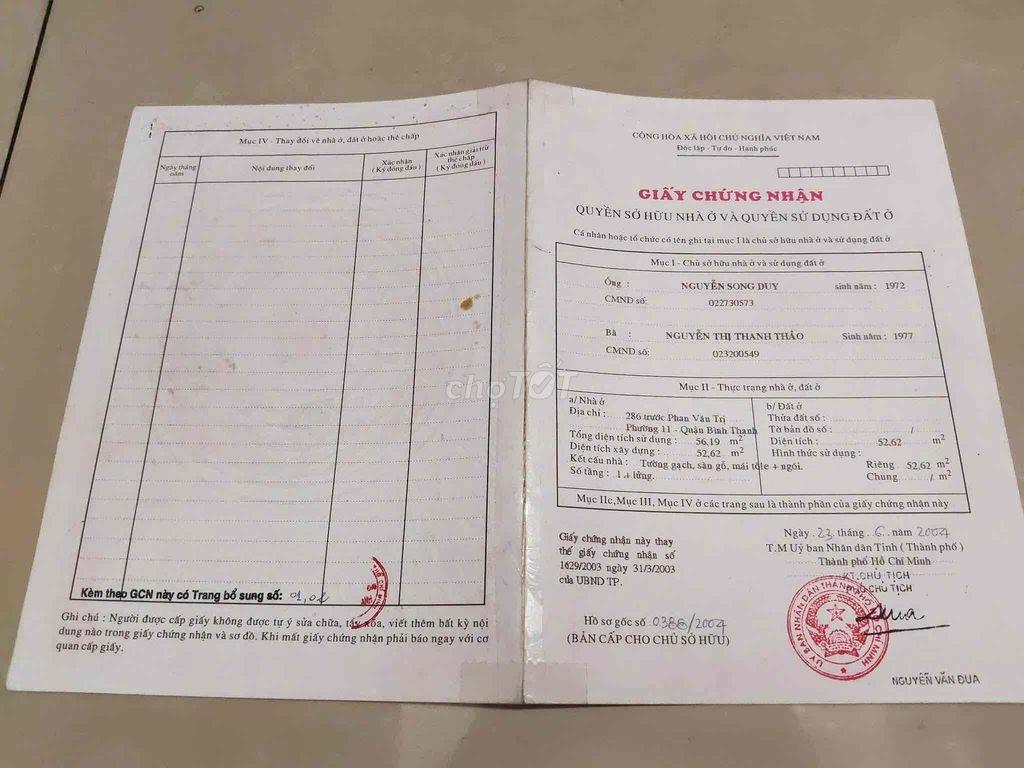 Mục IV - Thay đổi về nhà ở, đất ở hoặc thế chấp
Ngày tháng năm
Nội dung thay đổi
Xác nhận
(Ký đóng dấu)
Xác nhận giải trừ thế chấp
(Ký đóng dấu)
Kèm theo GCN này có Trang bổ sung số: 01,02
Ghi chú : Người được cấp giấy không được tự ý sửa chữa, tẩy xóa, viết thêm bất kỳ nội
dung nào trong giấy chứng nhận và sơ đồ. Khi mất giấy chứng nhận phải báo ngay với cơ
quan cấp giấy.
CỘNG HÒA XÃ HỘI CHỦ NGHĨA VIỆT NAM
Độc lập - Tự do - Hạnh phúc
GIẤY CHỨNG NHẬN
QUYỀN SỞ HỮU NHÀ Ở VÀ QUYỀN SỬ DỤNG ĐẤT Ở
Cá nhân hoặc tổ chức có tên ghi tại mục I là chủ sở hữu nhà ở và sử dụng đất ở
Mục I - Chủ sở hữu nhà ở và sử dụng đất ở
Ông : NGUYỄN SONG DUY sinh năm : 1972
CMND số: 022730573
Bà : NGUYỄN THỊ THANH THẢO Sinh năm : 1977
CMND số: 023200549
Mục II - Thực trạng nhà ở, đất ở
a/ Nhà ở
Địa chỉ : 286 trước Phan Văn Trị
Phường 11 - Quận Bình Thạnh
Tổng diện tích sử dụng : 56,19 m2
Diện tích xây dựng : 52,62 m2
Kết cấu nhà : Tường gạch, sàn gỗ, mái tole + ngói.
Số tầng : 1 + lửng.
b/ Đất ở
Thửa đất số :
Tờ bản đồ số : /
Diện tích : 52,62 m2
Hình thức sử dụng :
Riêng 52,62 m2
Chung / m2
Mục IIc,Mục III, Mục IV ở các trang sau là thành phần của giấy chứng nhận này
Giấy chứng nhận này thay
thế giấy chứng nhận số
1629/2003 ngày 31/3/2003
của UBND TP.
Hồ sơ gốc số 0388/2004
(BẢN CẤP CHO CHỦ SỞ HỮU)
Ngày 23 tháng 6 năm 2004
T.M Uỷ ban Nhân dân Tỉnh ( Thành phố )
Thành phố Hồ Chí Minh
KT.CHỦ TỊCH
PHÓ CHỦ TỊCH
NGUYỄN VĂN ĐUA
chợTỐT